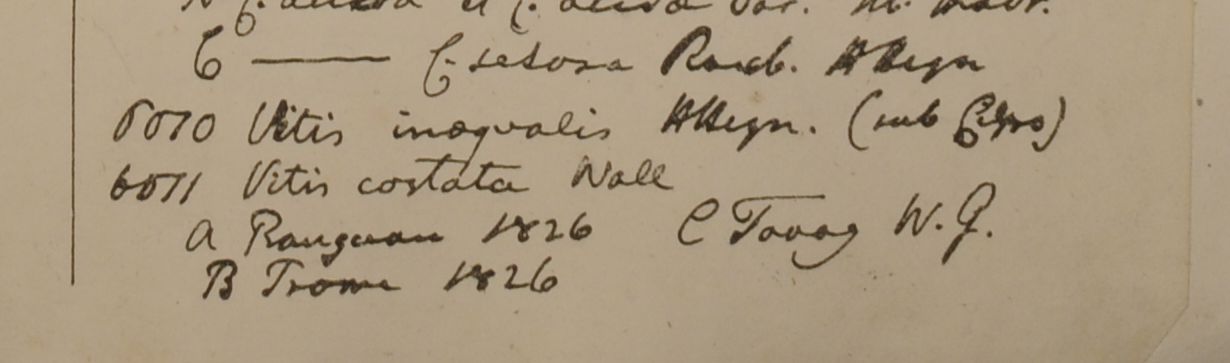 6 — C. setosa Roxb. HHeyn
6010 Vitis inaequalis HHeyn. (sub Cisso)
6011 Vitis costata Wall
A Rangoon 1826 C Tavoy W.G.
B Prome 1826